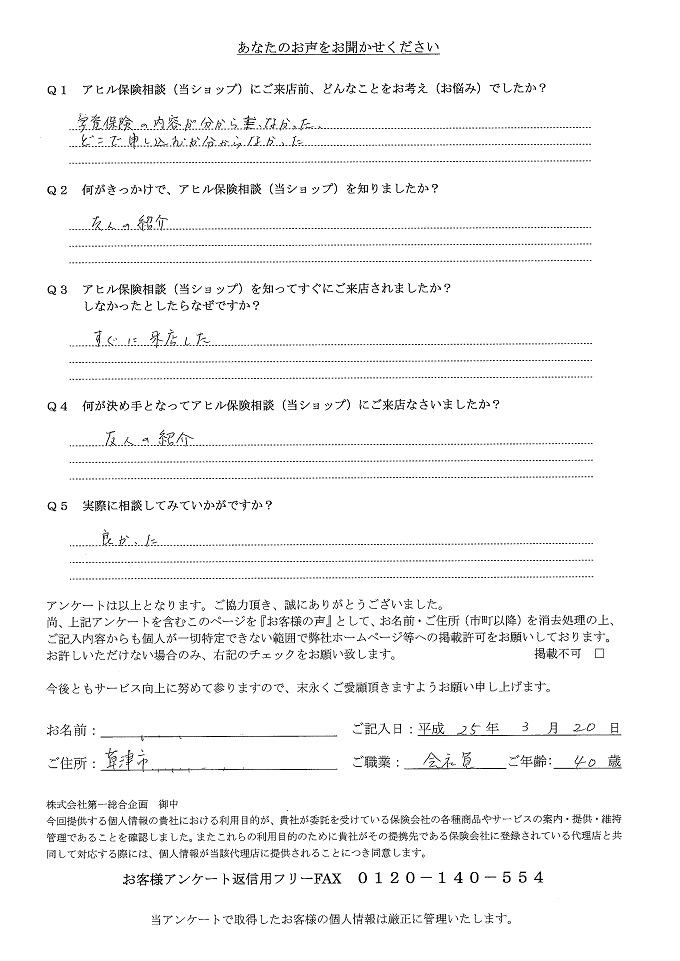 あなたのお声をお聞かせください
Q1 アヒル保険相談（当ショップ）にご来店前、どんなことをお考え（お悩み）でしたか？
学資保険の内容が分からなかった、
どこで申し込むか分からなかった
Q2 何がきっかけで、アヒル保険相談（当ショップ）を知りましたか？
友人の紹介
Q3 アヒル保険相談（当ショップ）を知ってすぐにご来店されましたか？
しなかったとしたらなぜですか？
すぐに来店した
Q4 何が決め手となってアヒル保険相談（当ショップ）にご来店なさいましたか？
友人の紹介
Q5 実際に相談してみていかがですか？
良かった
アンケートは以上となります。ご協力頂き、誠にありがとうございました。
尚、上記アンケートを含むこのページを『お客様の声』として、お名前・ご住所（市町以降）を消去処理の上、
ご記入内容からも個人が一切特定できない範囲で弊社ホームページ等への掲載許可をお願いしております。
お許しいただけない場合のみ、右記のチェックをお願い致します。 掲載不可 □
今後ともサービス向上に努めて参りますので、末永くご愛顧頂きますようお願い申し上げます。
お名前： ご記入日：平成 25年 3月 20日
ご住所：草津市 ご職業：会社員 ご年齢：40歳
株式会社第一総合企画 御中
今回提供する個人情報の貴社における利用目的が、貴社が委託を受けている保険会社の各種商品やサービスの案内・提供・維持
管理であることを確認しました。またこれらの利用目的のために貴社がその提携先である保険会社に登録されている代理店と共
同して対応する際には、個人情報が当該代理店に提供されることにつき同意します。
お客様アンケート返信用フリーFAX 0120－140－554
当アンケートで取得したお客様の個人情報は厳正に管理いたします。